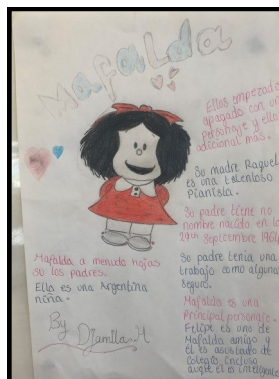 Mafalda
Ellos empezado
apagado con un
personaje y ello
adicional mas.
So madre Raquel
es una talentoso
Pianista.
So padre tiene no
nombre nacido en la
29th September 1964
So padre tenia una
trabajo como alguna
seguro.
Mafalda es una
Principal personaje.
Felipe es uno de
Mafalda amigo y
él es asustado de
Colegio Encluso
auque él es inteligente
Mafalda a menuda hojas
su los padres.
Ella es una Argentina
niña.
By
Djamila.H